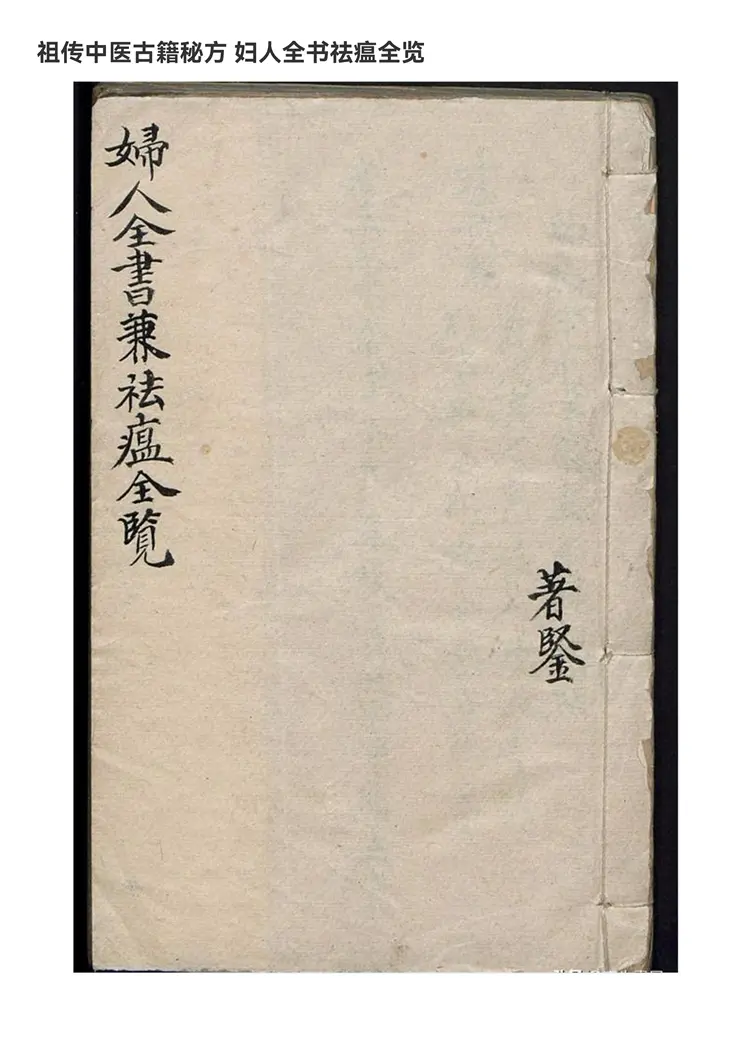 祖传中医古籍秘方 妇人全书祛瘟全览
婦人全書兼祛瘟全覽
著鋻